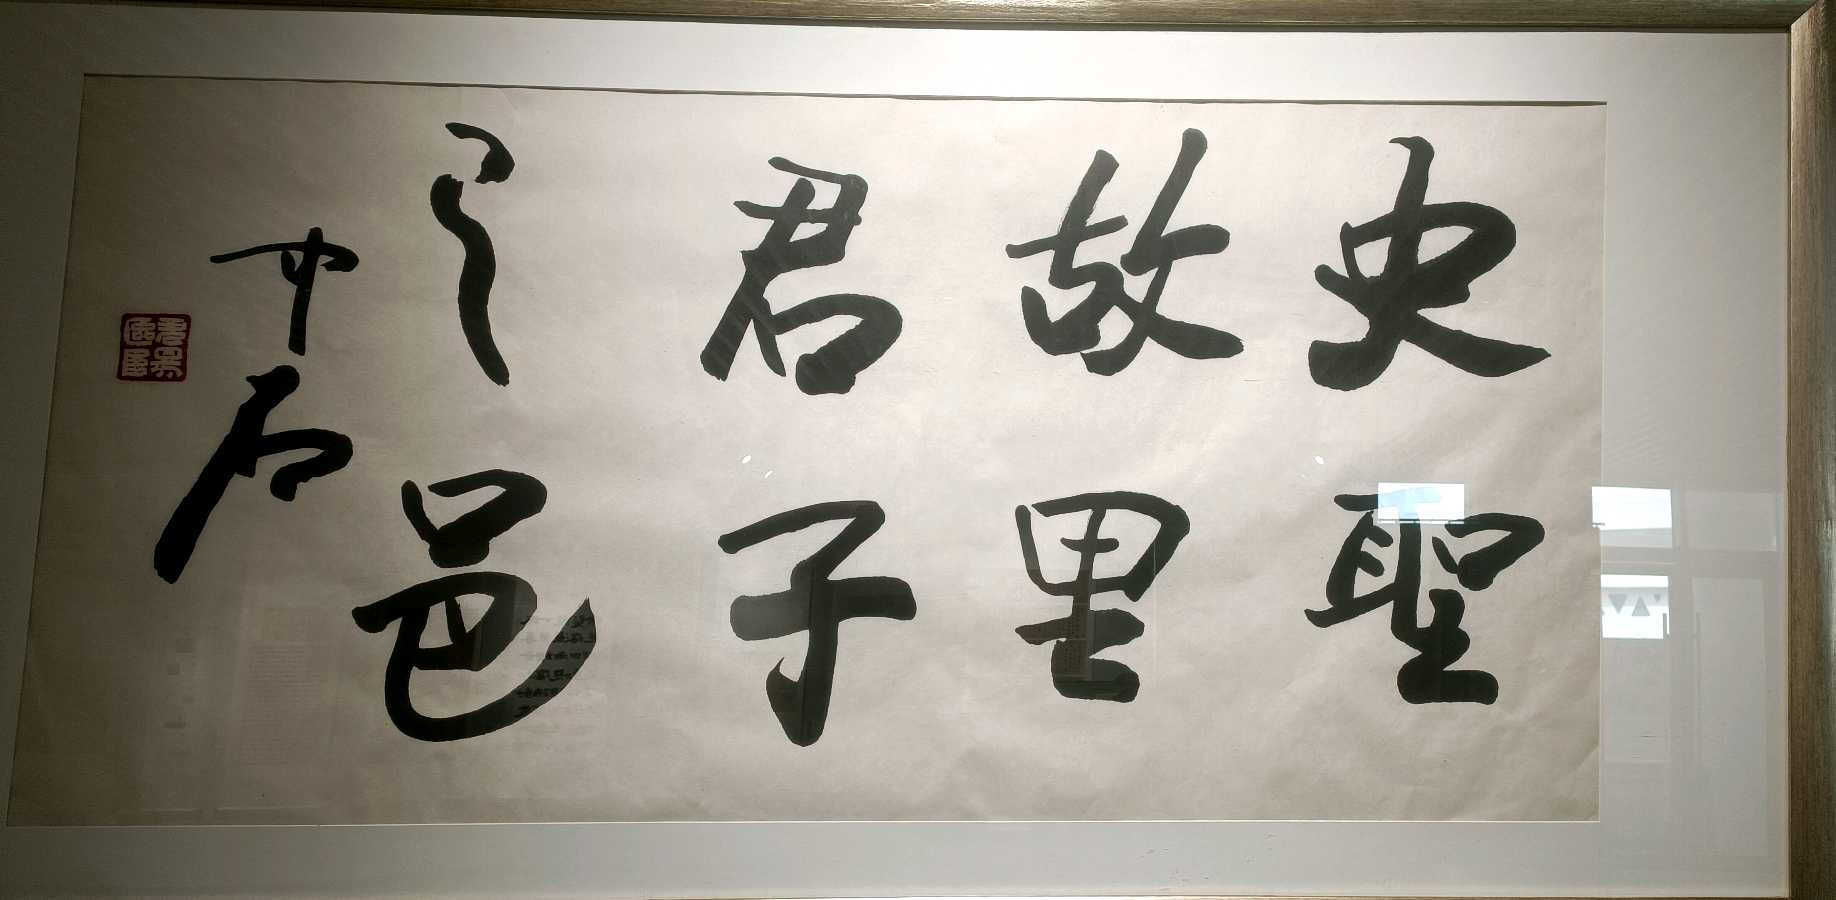 史聖
故里
君子
之邑
中石